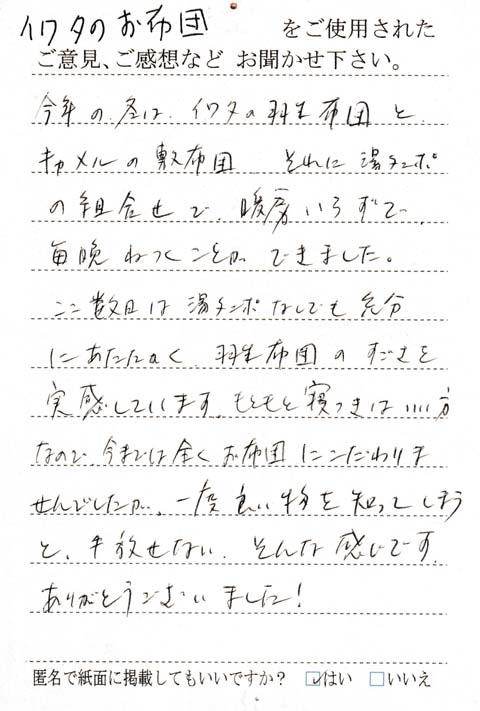 イワタのお布団 をご使用された
ご意見、ご感想など お聞かせ下さい。
今年の冬は、イワタの羽生布団と
キャメルの敷布団 それに湯タンポ
の組合せで、暖房いらずで、
毎晩ねつくことができました。
ここ数日は湯タンポなしでも充分
にあたたかく、羽生布団のすごさを
実感しています。もともと寝つきはいい方
なので、今までは全くお布団にこだわりま
せんでしたが、一度良い物を知ってしまう
と、手放せない、そんな感じです。
ありがとうございました!
匿名で紙面に掲載してもいいですか? はい いいえ